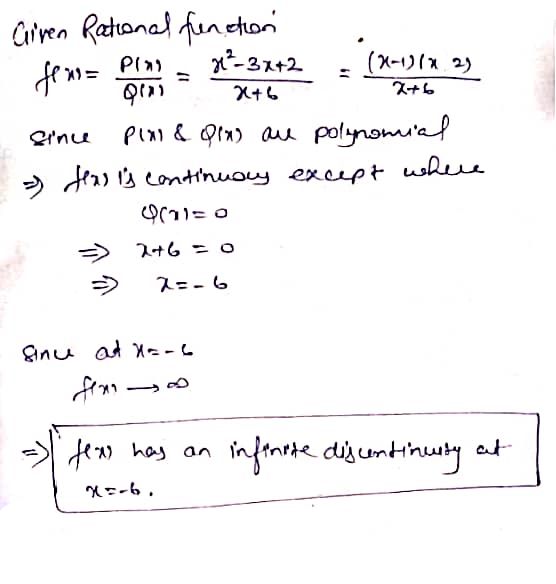 Given Rational function
f(x) = P(x)/Q(x) = x²-3x+2/x+6 = (x-1)(x 2)/x+6
since P(x) & Q(x) are polynomial
⇒ f(x) is continuous except where
Q(x) = 0
⇒ x+6 = 0
⇒ x = -6
Since at x = -6
f(x) → ∞
⇒ f(x) has an infinite discontinuity at
x = -6.